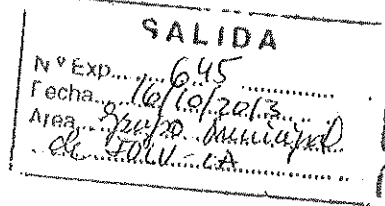 SALIDA
Nº Exp. 645
Fecha 16/10/2013
Area Grupo Municipal
de IULV-CA